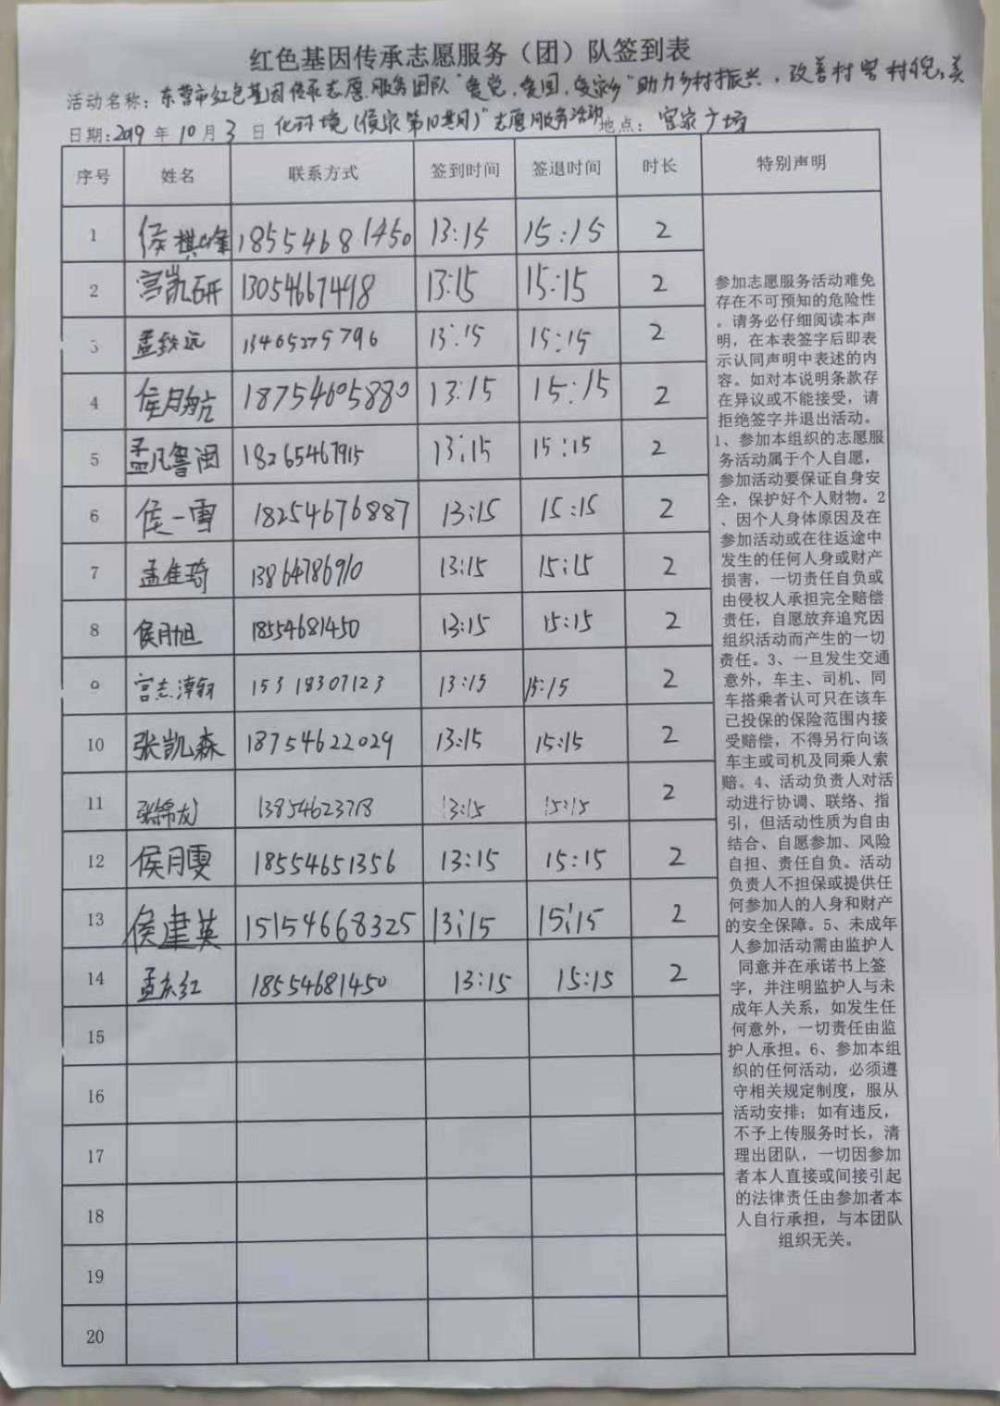 红色基因传承志愿服务（团）队签到表
活动名称：东营市红色基因传承志愿服务团队“爱党，爱国，爱家乡”助力乡村振兴，改善村容村貌，美
日期：2019 年 10 月 3 日 化环境（侯家第10期）”志愿服务活动 地点：宫家广场
序号 姓名 联系方式 签到时间 签退时间 时长 特别声明
1 侯棋峰 18554681450 13:15 15:15 2
2 宫凯研 13054667498 13:15 15:15 2
3 孟钦远 13405275796 13:15 15:15 2
4 侯月航 18754605880 13:15 15:15 2
5 孟凡鲁闽 18265467915 13:15 15:15 2
6 侯一雪 18254676887 13:15 15:15 2
7 孟佳琦 13864786910 13:15 15:15 2
8 侯月旭 18554681450 13:15 15:15 2
9 宫志 15318307123 13:15 15:15 2
10 张凯森 18754622029 13:15 15:15 2
11 张锦龙 13854623718 13:15 15:15 2
12 侯月雯 18554651356 13:15 15:15 2
13 侯建英 15154668325 13:15 15:15 2
14 孟东红 18554681450 13:15 15:15 2
15
16
17
18
19
20
参加志愿服务活动难免
存在不可预知的危险性
。请务必仔细阅读本声
明，在本表签字后即表
示认同声明中表述的内
容。如对本说明条款存
在异议或不能接受，请
拒绝签字并退出活动。
1、参加本组织的志愿服
务活动属于个人自愿，
参加活动要保证自身安
全，保护好个人财物。2
、因个人身体原因及在
参加活动或在往返途中
发生的任何人身或财产
损害，一切责任自负或
由侵权人承担完全赔偿
责任，自愿放弃追究因
组织活动而产生的一切
责任。3、一旦发生交通
意外，车主、司机、同
车搭乘者认可只在该车
已投保的保险范围内接
受赔偿，不得另行向该
车主或司机及同乘人索
赔。4、活动负责人对活
动进行协调、联络、指
引，但活动性质为自由
结合、自愿参加、风险
自担、责任自负。活动
负责人不担保或提供任
何参加人的人身和财产
的安全保障。5、未成年
人参加活动需由监护人
同意并在承诺书上签
字，并注明监护人与未
成年人关系，如发生任
何意外，一切责任由监
护人承担。6、参加本组
织的任何活动，必须遵
守相关规定制度，服从
活动安排；如有违反，
不予上传服务时长，清
理出团队，一切因参加
者本人直接或间接引起
的法律责任由参加者本
人自行承担，与本团队
组织无关。